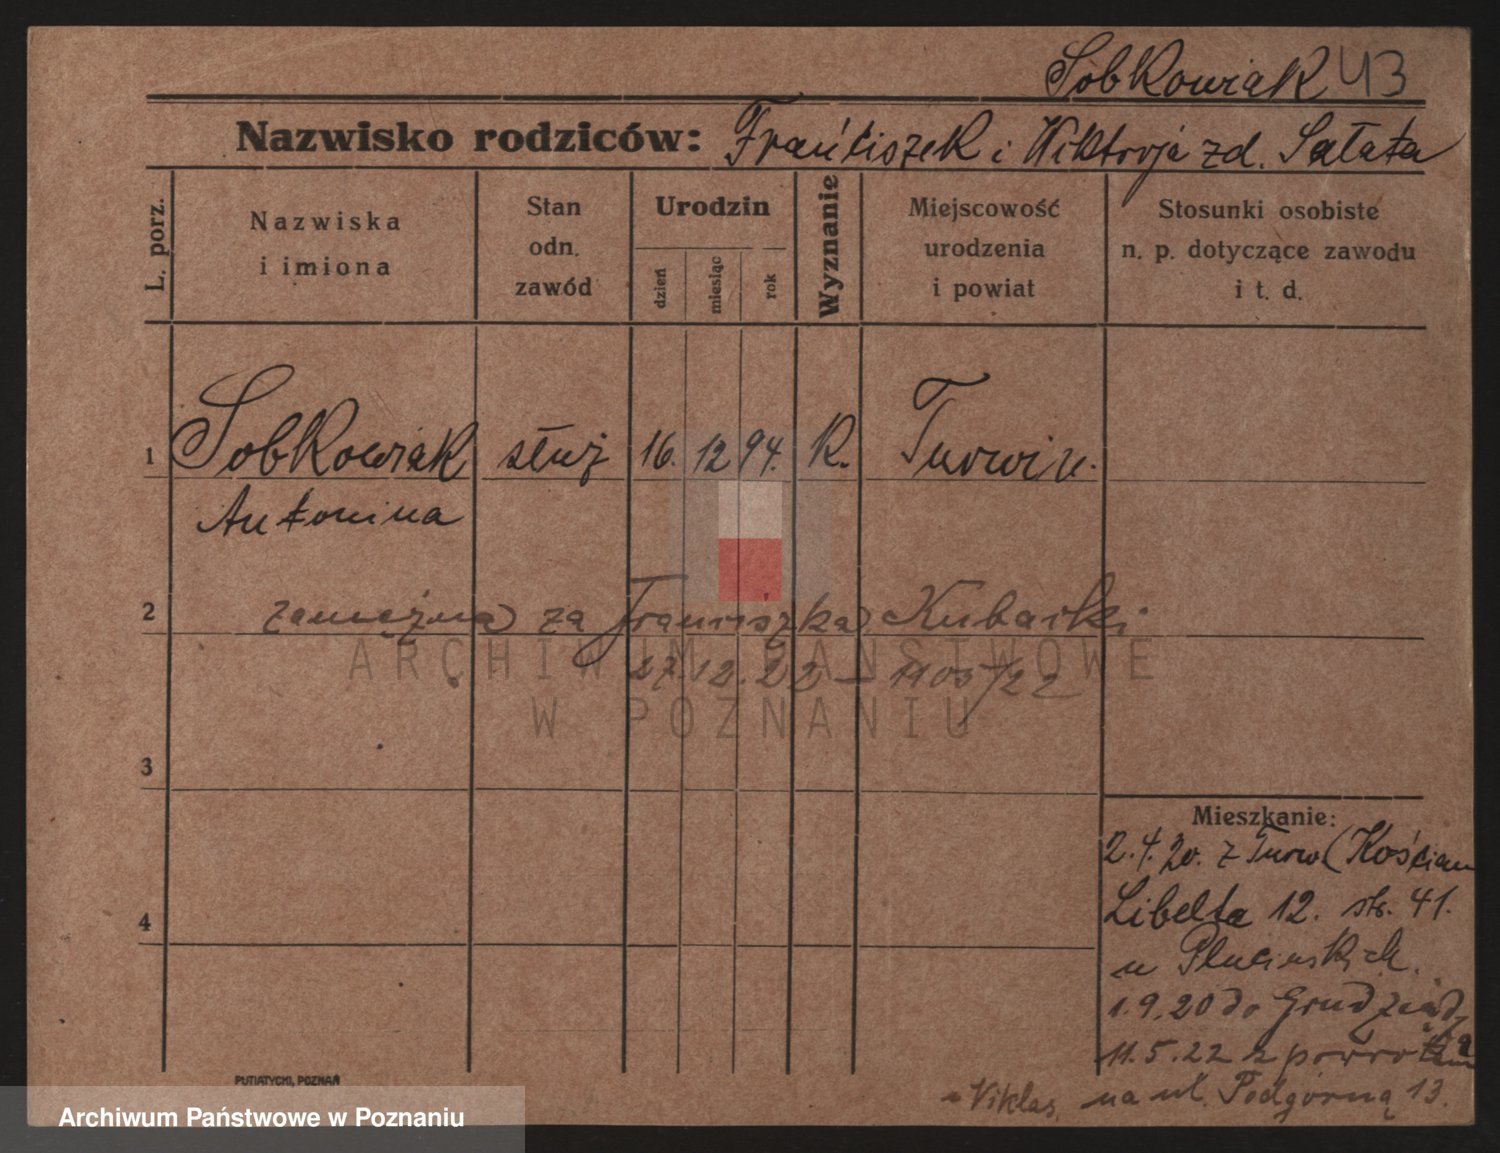 Sobkowiak 43
Nazwisko rodziców: Franciszek i Wiktorja zd. Sałata
L. porz.
Nazwiska i imiona
Stan odn. zawód
Urodzin
dzień
miesiąc
rok
Wyznanie
Miejscowość urodzenia i powiat
Stosunki osobiste n. p. dotyczące zawodu i t. d.
1 Sobkowiak służ 16. 12 94. K. Turwi
Antonina
2 zamężna za Franciszka Kubacki
27.12.22 – 1105/22
3
4
Mieszkanie:
2.4.20. z Turw (Kościan
Libelta 12. str. 41.
u Plucińskich.
1.9.20 do Grudziądz
11.5.22 z powrotem
na ul. Podgórną 13.
u Viklas,
PUTIATYCKI, POZNAŃ
ARCHIWUM PAŃSTWOWE
W POZNANIU
Archiwum Państwowe w Poznaniu